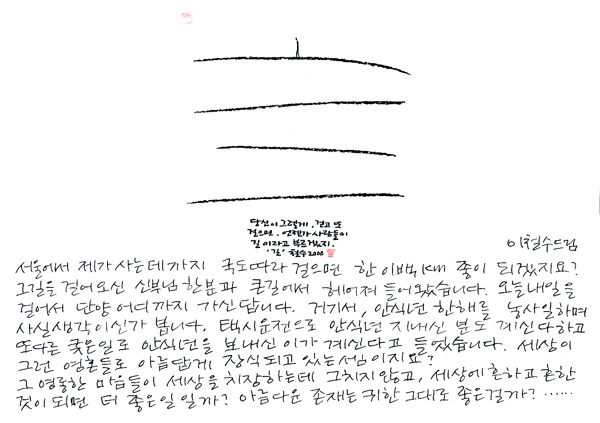 당신이 그렇게, 걷고 또
걸으면, 언젠가 사람들이
길이라고 부르겠지.
'길' 철수 2000
이철수드림
서울에서 제가 사는데까지 국도따라 걸으면 한 이백km 좋이 되겠지요?
그길을 걸어오신 신부님 한분과 큰길에서 헤어져 들어왔습니다. 오늘내일을
걸어서 단양 어디까지 가신답니다. 거기서, 안식년 한해를 농사일하며
사실생각이신가 봅니다. 택시운전으로 안식년 지내신 분도 계신다하고
또다른 궂은일로 안식년을 보내신 이가 계신다고 들었습니다. 세상이
그런 영혼들로 아름답게 장식되고 있는 셈이지요?
그 영롱한 마음들이 세상을 치장하는데 그치지 않고, 세상에 흔하고 흔한
것이 되면 더 좋은일 일까? 아름다운 존재는 귀한 그대로 좋은걸까? ······